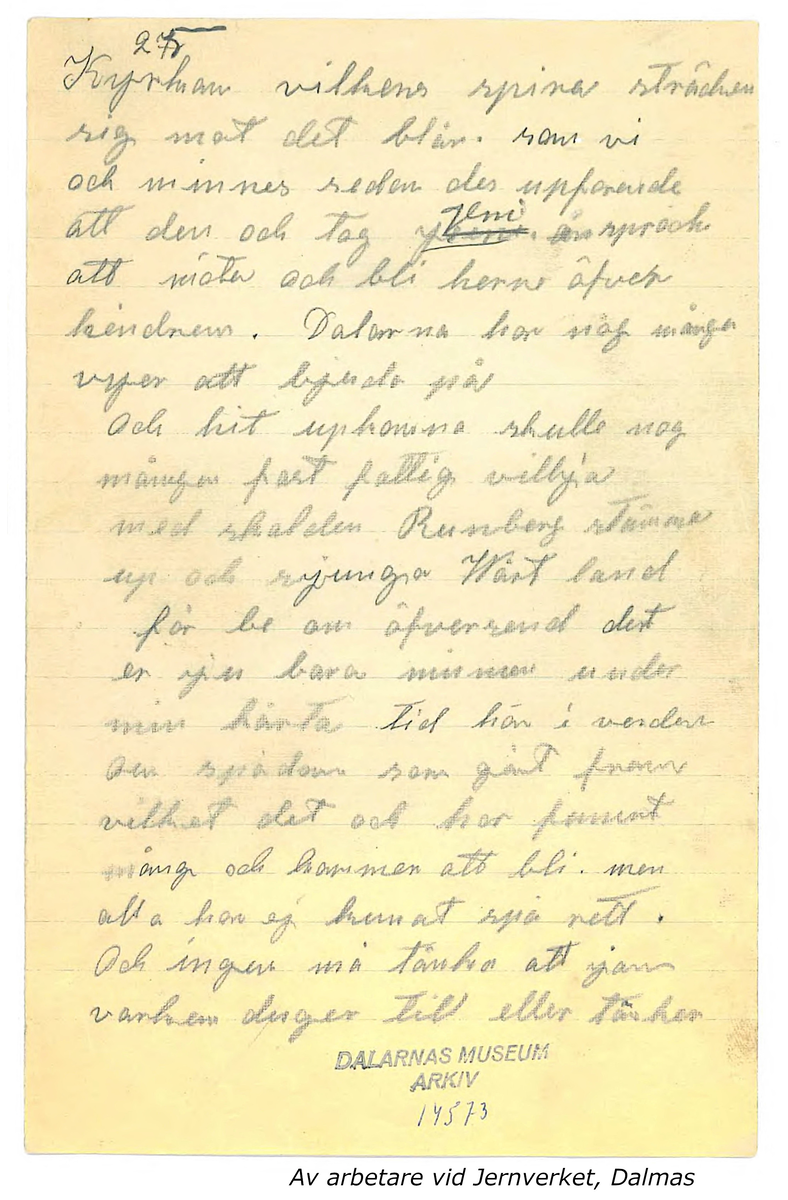 275
Kyrkan vilkens spira sträcker
sig mot det blåa. som vi
och minnes sedan des upförende
att den och tog Jeni anspråk
att möta och bli herre öfver
hindren. Dalarna har nog många
vyer att bjuda på
Och hit upkomna skulle nog
mången fast fattig villja
med skalden Runberg stämma
up och sjunga Wårt land
får be om öfverseend det
er ju bara minnen under
min korta tid här i verden
den spådom som gåt fram
vilket det och har funnt
mång och kommer att bli. men
alla har ej kunat spå rett.
Och ingen må tänka att jan
varken duger till eller tänker
DALARNAS MUSEUM
ARKIV
14573
Av arbetare vid Jernverket, Dalmas